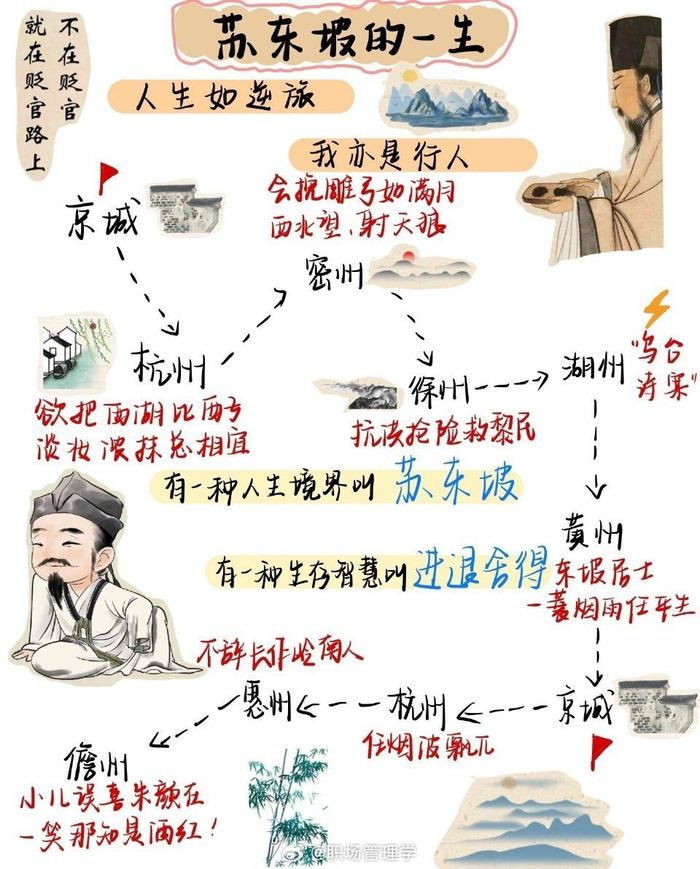 苏东坡的一生
不在贬官
就在贬官路上
人生如逆旅
我亦是行人
京城
会挽雕弓如满月
西北望，射天狼
密州
杭州
欲把西湖比西子
淡妆浓抹总相宜
徐州
抗洪抢险救黎民
湖州
"乌台
诗案"
有一种人生境界叫 苏东坡
有一种生存智慧叫 进退舍得
黄州
东坡居士
一蓑烟雨任平生
京城
杭州
任烟波飘兀
不辞长作岭南人
惠州
儋州
小儿误喜朱颜在
一笑那知是酒红！
@职场管理学